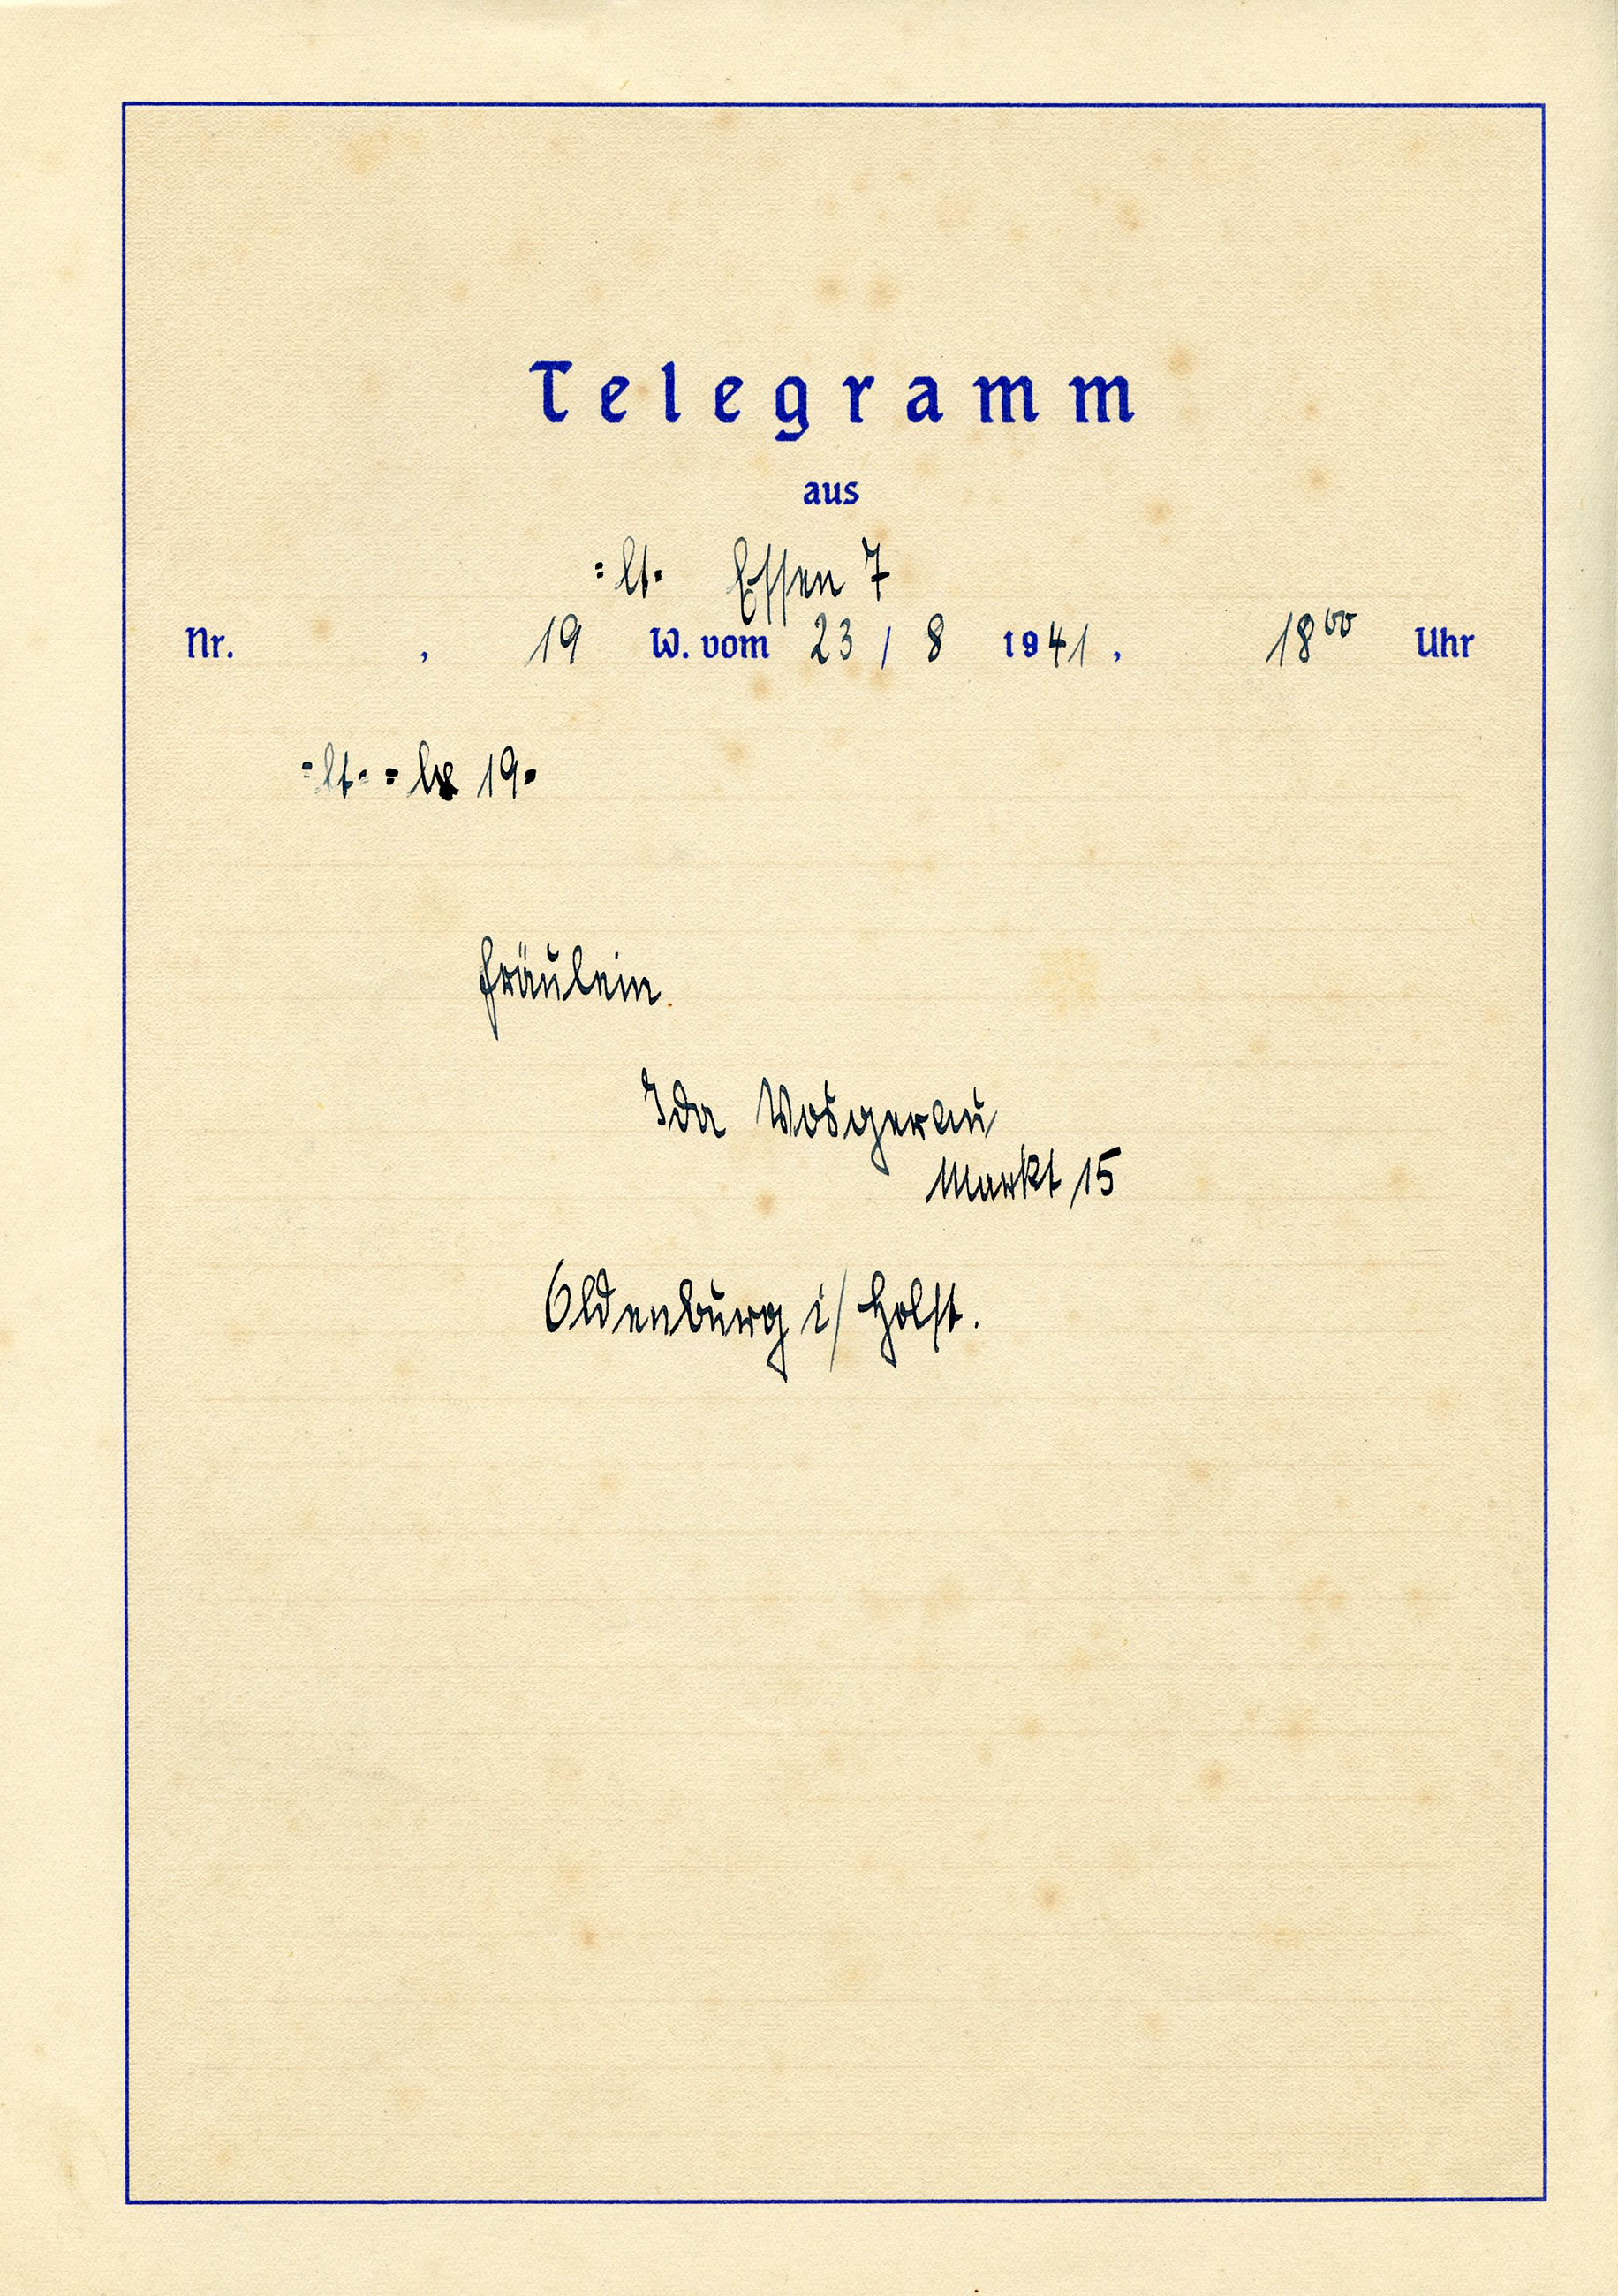 Telegramm
aus
=lt= Essen 7
Nr. , 19 W. vom 23 / 8 1941, 18⁰⁰ Uhr
=lt= =lx 19=
Fräulein
Ida Vosgerau
Markt 15
Oldenburg i/Holst.